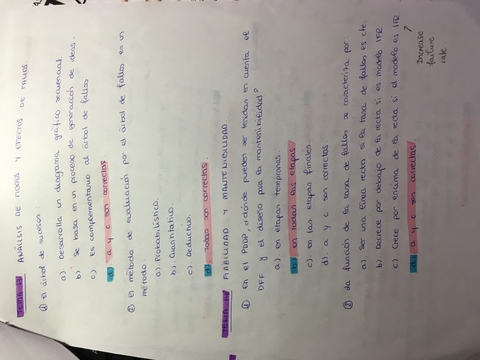 TEMA 13 ANÁLISIS DE MODOS Y EFECTOS DE FALLOS
① El árbol de sucesos
a). Desarrolla un diagrama gráfico secuencial.
b). Se basa en un proceso de generación de ideas.
c). Es complementario al árbol de fallos
d). a y c son correctas
② El método de evaluación por el árbol de fallos es un
método.
a). Probabilístico.
b). Cuantitativo.
c). Deductivo.
d). Todas son correctas
FIABILIDAD Y MANTENIBILIDAD
① En el PDDP, ¿dónde pueden ser tenidas en cuenta el
DFF y el diseño para la mantenibilidad?
a). en etapas tempranas.
b). en todas las etapas
c). en las etapas finales
d). a y c son correctas
② La función de la tasa de fallos se caracteriza por
a). Ser una línea recta si la tasa de fallos es cte.
b). Decrece por debajo de la recta si es modelo IFR
c). Crece por encima de la recta si el modelo es IFR
d). a y c son correctas
Increase
failure
rate